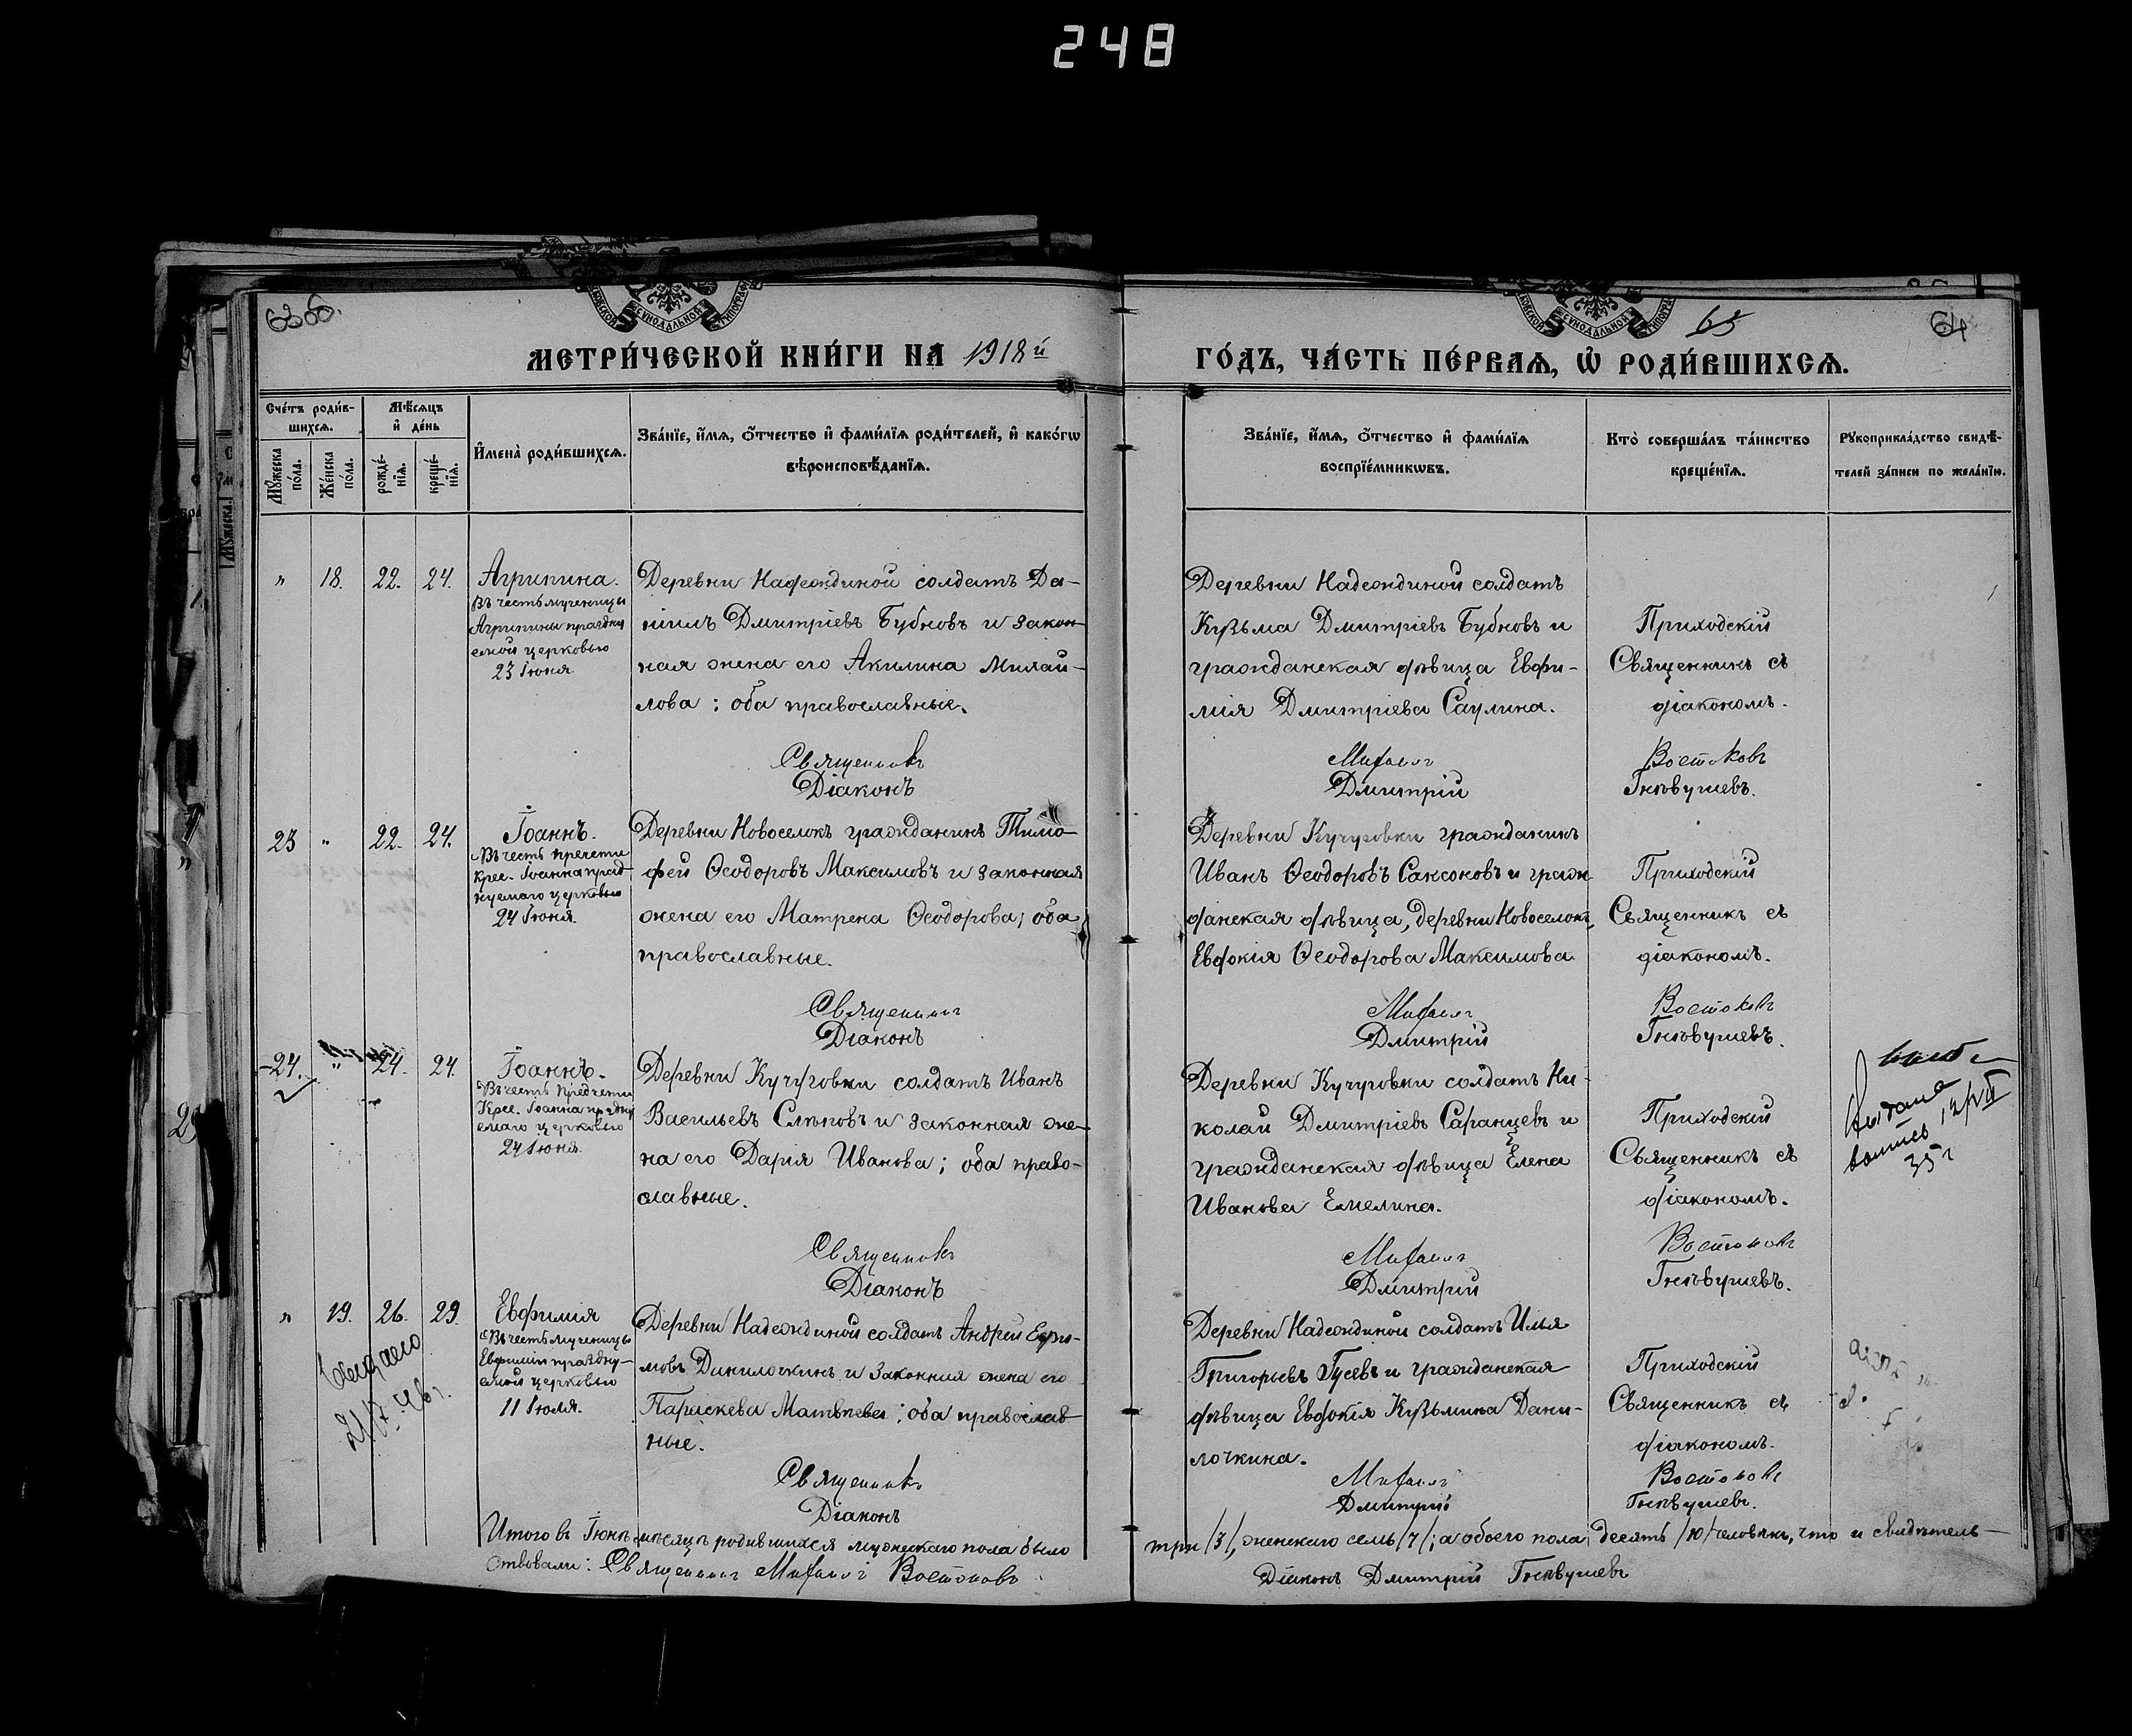 248
63об.
65
64
МЕТРИ́ЧЕСКОЙ КНИ́ГИ НА 1918й
ГО́ДЪ, ЧА́СТЬ ПЕ́РВАѦ, Ѡ҆ РОДИ́ВШИХСѦ.
Сче́тъ роди́в-
шихсѧ.
Мꙋ́жеска по́ла.
Же́нска по́ла.
Мѣ́сѧцъ
и҆ де́нь
рожде́-нїѧ.
креще́-нїѧ.
И҆мена̀ роди́вшихсѧ.
Зва́нїе, и҆́мѧ, о҆́тчество и҆ фами́лїѧ роди́телей, и҆ како́гѡ
вѣроисповѣ́данїѧ.
Зва́нїе, и҆́мѧ, о҆́тчество и҆ фами́лїѧ
воспрїе́мникѡвъ.
Кто̀ соверша́лъ та́инство
креще́нїѧ.
Рꙋкоприкла́дство свидѣ́-
телей за́писи по жела́нїю.
" 18. 22. 24.
Агрипина.
Въ честь мученицы
Агрипины праздну
емой церковью
23 Iюня.
Деревни Надеждиной солдатъ Да-
нiилъ Дмитрiевъ Бубновъ и закон-
ная жена его Акилина Михай-
лова; оба православные.
Деревни Надеждиной солдатъ
Кузьма Дмитрiевъ Бубновъ и
гражданская дѣвица Евфи-
мiя Дмитрiева Саулина.
Приходскiй
Священникъ съ
дiакономъ.
Священникъ Михаилъ Востоковъ
Дiаконъ Дмитрiй Гнѣвушевъ.
23 " 22. 24.
Iоаннъ.
Въ честь Предтечи
Крес. Iоанна празд
нуемаго церковью
24 Iюня.
Деревни Новоселокъ гражданинъ Тимо-
фей Ѳеодоровъ Максимовъ и законная
жена его Матрена Ѳеодорова; оба
православные.
Деревни Кучуговки гражданинъ
Иванъ Ѳеодоровъ Саксоновъ и граж-
данская дѣвица, деревни Новоселокъ,
Евдокiя Ѳеодорова Максимова
Приходскiй
Священникъ съ
дiакономъ.
Священникъ Михаилъ Востоковъ
Дiаконъ Дмитрiй Гнѣвушевъ.
24. " 24. 24.
Iоаннъ.
Въ честь Предтечи
Крес. Iоанна праздну
емаго церковью
24 Iюня.
Деревни Кучуговки солдатъ Иванъ
Васильевъ Слѣповъ и законная же-
на его Дарiя Иванова; оба право-
славные.
Деревни Кучуговки солдатъ Ни-
колай Дмитрiевъ Саранцевъ и
гражданская дѣвица Елена
Иванова Емелина.
Приходскiй
Священникъ съ
дiакономъ.
35 г
Священникъ Михаилъ Востоковъ
Дiаконъ Дмитрiй Гнѣвушевъ.
" 19. 26. 29.
Евфимiя
Въ честь мученицы
Евфимiи праздну-
емой церковью
11 Iюля.
Деревни Надеждиной солдатъ Андрей Ефи-
мовъ Данилочкинъ и законная жена его
Параскева Матвѣева; оба православ-
ные.
Деревни Надеждиной солдатъ Илья
Григорьевъ Гусевъ и гражданская
дѣвица Евдокiя Кузьмина Дани-
лочкина.
Приходскiй
Священникъ съ
дiакономъ.
Священникъ Михаилъ Востоковъ
Дiаконъ Дмитрiй Гнѣвушевъ.
Итого въ Iюнѣ мѣсяцѣ родившихся мужескаго пола было три /3/, женскаго семь /7/; а обоего пола десять /10/ человѣкъ, что и свидѣтель-
ствовали: Священникъ Михаилъ Востоковъ Дiаконъ Дмитрiй Гнѣвушевъ